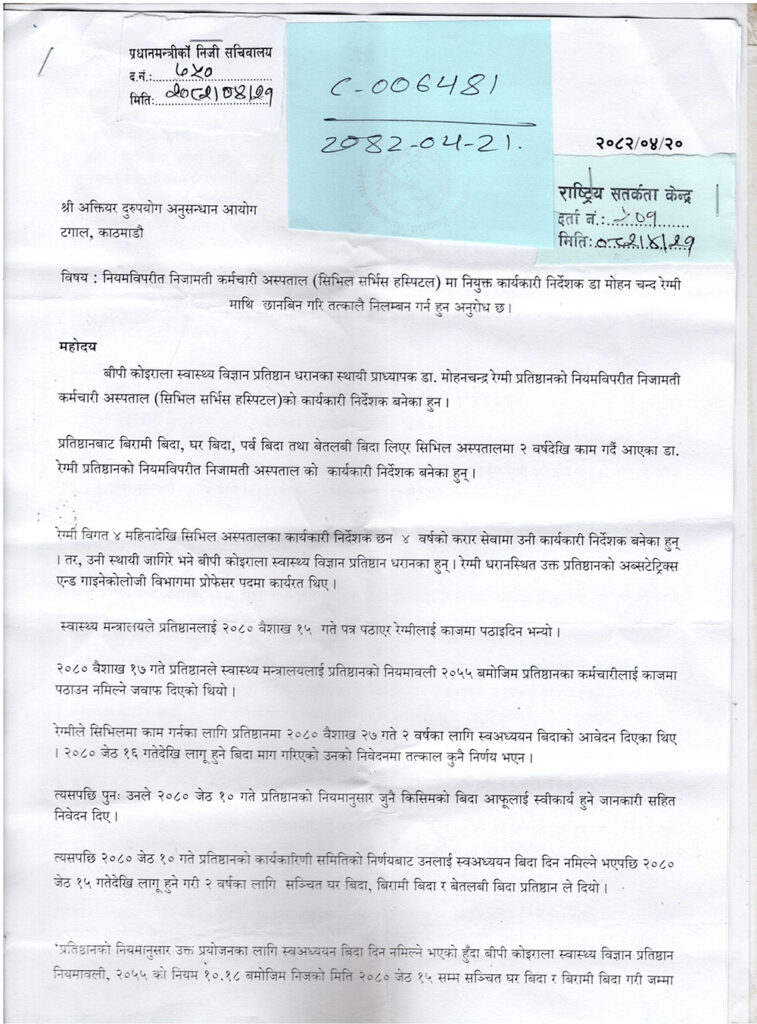 प्रधानमन्त्रीको निजी सचिवालय
द.नं.: ७५०
मिति: २०८२/०४/२१
C-006481
2082-04-21.
२०८२/०४/२०
राष्ट्रिय सतर्कता केन्द्र
दर्ता नं.: ५०१
मिति: ०८२/४/२१
श्री अक्तियर दुरुपयोग अनुसन्धान आयोग
टगाल, काठमाडौ
विषय : नियमविपरीत निजामती कर्मचारी अस्पताल (सिभिल सर्भिस हस्पिटल) मा नियुक्त कार्यकारी निर्देशक डा मोहन चन्द रेग्मी
माथि छानबिन गरि तत्कालै निलम्बन गर्न हुन अनुरोध छ।
महोदय
बीपी कोइराला स्वास्थ्य विज्ञान प्रतिष्ठान धरानका स्थायी प्राध्यापक डा. मोहनचन्द्र रेग्मी प्रतिष्ठानको नियमविपरीत निजामती
कर्मचारी अस्पताल (सिभिल सर्भिस हस्पिटल)को कार्यकारी निर्देशक बनेका हुन।
प्रतिष्ठानबाट बिरामी बिदा, घर बिदा, पर्व बिदा तथा बेतलबी बिदा लिएर सिभिल अस्पतालमा २ वर्षदेखि काम गर्दै आएका डा.
रेग्मी प्रतिष्ठानको नियमविपरीत निजामती अस्पताल को कार्यकारी निर्देशक बनेका हुन्।
रेग्मी विगत ४ महिनादेखि सिभिल अस्पतालका कार्यकारी निर्देशक छन ४ वर्षको करार सेवामा उनी कार्यकारी निर्देशक बनेका हुन्
। तर, उनी स्थायी जागिरे भने बीपी कोइराला स्वास्थ्य विज्ञान प्रतिष्ठान धरानका हुन्। रेग्मी धरानस्थित उक्त प्रतिष्ठानको अब्सटेट्रिक्स
एन्ड गाइनेकोलोजी विभागमा प्रोफेसर पदमा कार्यरत थिए।
स्वास्थ्य मन्त्रालयले प्रतिष्ठानलाई २०८० वैशाख १५ गते पत्र पठाएर रेग्मीलाई काजमा पठाइदिन भन्यो।
२०८० वैशाख १७ गते प्रतिष्ठानले स्वास्थ्य मन्त्रालयलाई प्रतिष्ठानको नियमावली २०५५ बमोजिम प्रतिष्ठानका कर्मचारीलाई काजमा
पठाउन नमिल्ने जवाफ दिएको थियो।
रेग्मीले सिभिलमा काम गर्नका लागि प्रतिष्ठानमा २०८० वैशाख २७ गते २ वर्षका लागि स्वअध्ययन बिदाको आवेदन दिएका थिए
। २०८० जेठ १६ गतेदेखि लागू हुने बिदा माग गरिएको उनको निवेदनमा तत्काल कुनै निर्णय भएन।
त्यसपछि पुनः उनले २०८० जेठ १० गते प्रतिष्ठानको नियमानुसार जुनै किसिमको बिदा आफूलाई स्वीकार्य हुने जानकारी सहित
निवेदन दिए।
त्यसपछि २०८० जेठ १० गते प्रतिष्ठानको कार्यकारिणी समितिको निर्णयबाट उनलाई स्वअध्ययन बिदा दिन नमिल्ने भएपछि २०८०
जेठ १५ गतेदेखि लागू हुने गरी २ वर्षका लागि सञ्चित घर बिदा, बिरामी बिदा र बेतलबी बिदा प्रतिष्ठान ले दियो।
'प्रतिष्ठानको नियमानुसार उक्त प्रयोजनका लागि स्वअध्ययन बिदा दिन नमिल्ने भएको हुँदा बीपी कोइराला स्वास्थ्य विज्ञान प्रतिष्ठान
नियमावली, २०५५ को नियम १०.१८ बमोजिम निजको मिति २०८० जेठ १५ सम्म सञ्चित घर बिदा र बिरामी बिदा गरी जम्मा